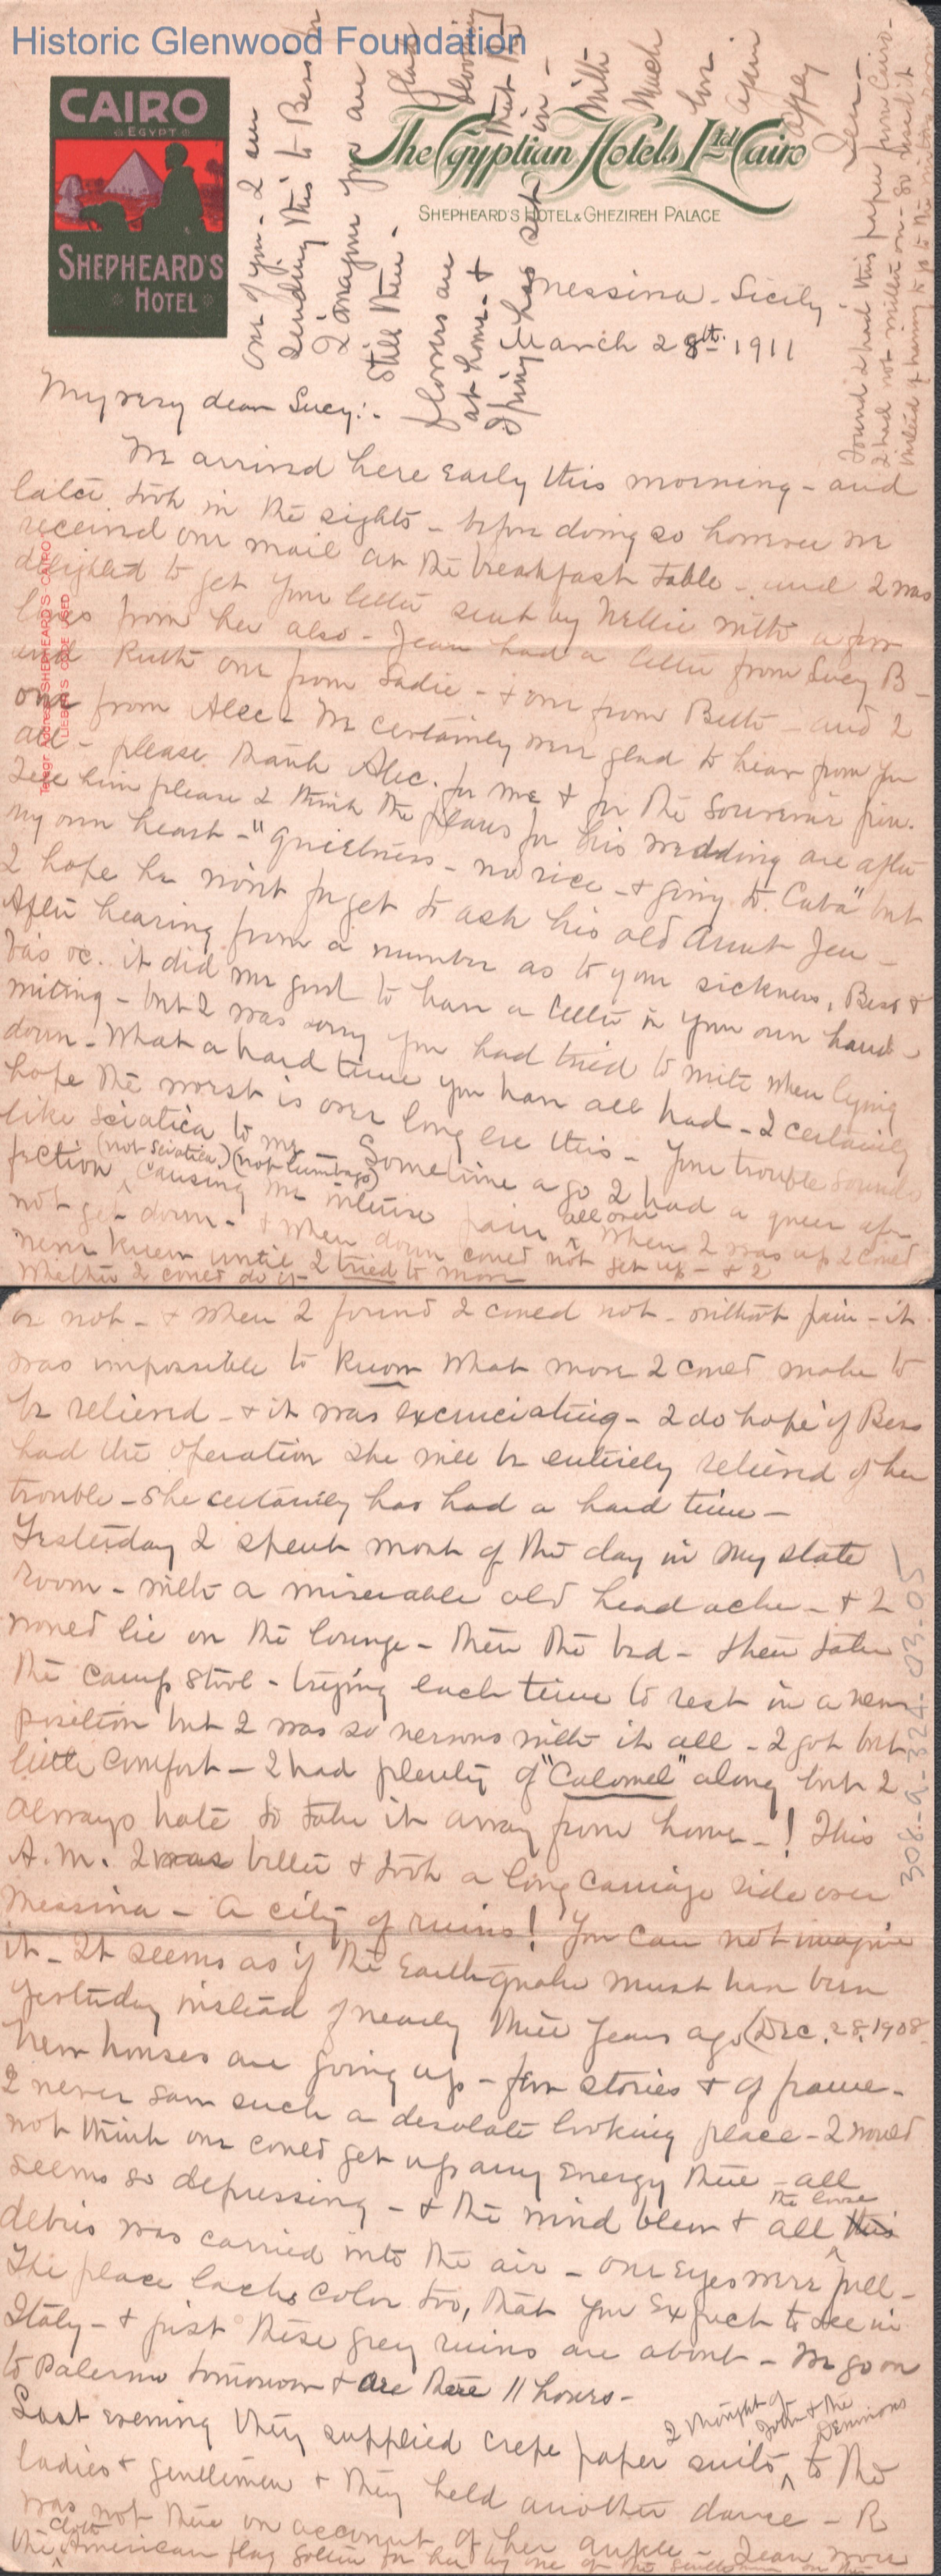 Historic Glenwood Foundation
CAIRO
EGYPT
SHEPHEARD'S
HOTEL
The Egyptian Hotels Ltd Cairo
SHEPHEARD'S HOTEL & GHEZIREH PALACE
Messina - Sicily
March 28th 1911
My very dear Lucy:-
We arrived here early this morning - and
later took in the sights - before doing so however we
received our mail at the breakfast table - and I was
delighted to get your letter sent by Nellie with a few
lines from her also - Jean had a letter from Lucy B -
and Ruth one from Sadie - & one from Betts - and I
one from Alec - We certainly were glad to hear from you
all - please thank Alec. for me & for the Souvenir pin.
Tell him please I think the plans for his wedding are after
my own heart - "quietness - no rice - & going to Cuba" but
I hope he won't forget to ask his old Aunt Jen -
After hearing from a number as to your sickness, Bess &
Va's oc. it did me good to have a letter in your own hand -
writing - but I was sorry you had tried to write when lying
down - What a hard time you have all had - I certainly
hope the worst is over long ere this - Your trouble sounds
like Sciatica to me - Sometime ago I had a queer affe
(not Sciatica) (not lumbago)
fection causing me intense pain all over when I was up I could
not get down - & when down could not get up - & I
never knew until I tried to move
whether I could do it
or not - & when I found I could not - without pain - it
was impossible to know what move I could make to
be relieved - & it was excruciating - I do hope if Bess
had the operation she will be entirely relieved of her
trouble - She certainly has had a hard time -
Yesterday I spent most of the day in my state
room - with a miserable old headache - & I
would lie on the lounge - then the bed - then take
the camp stool - trying each time to rest in a new
position but I was so nervous with it all - I got but
little comfort - I had plenty of "Calomel" along but I
always hate to take it away from home - ! This
A.M. I was better & took a long carriage ride over
Messina - A city of ruins! You can not imagine
it - It seems as if the Earthquake must have been
yesterday instead of nearly three years ago (Dec. 28, 1908
New houses are going up - few stories & of frame -
I never saw such a desolate looking place - I would
not think one could get up any energy there - all
seems so depressing - & the wind blew & all the loose
debris was carried into the air - our eyes were full -
The place lacks color too, that you expect to see in
Italy - & just these grey ruins are about - We go on
to Palermo tomorrow & are there 11 hours -
I thought of John & the Demmons
Last evening they supplied crepe paper suits to the
ladies & gentlemen & they held another dance - R
was not there on account of her ankle - Jean wore
the cloth American flag gotten for her by one of the gentlemen on the
one of you - I am
sending this to Bess for
I imagine you are
still there -
flowers are
at home - &
Spring has set in -
With
Much
love
again
Affly
Jen -
Found I had this paper from Cairo -
I had not written on - so used it
instead of having to go to the writing room
Telegr. Address SHEPHEARD'S - CAIRO
LIEBER'S CODE USED
308-a-324-03-05